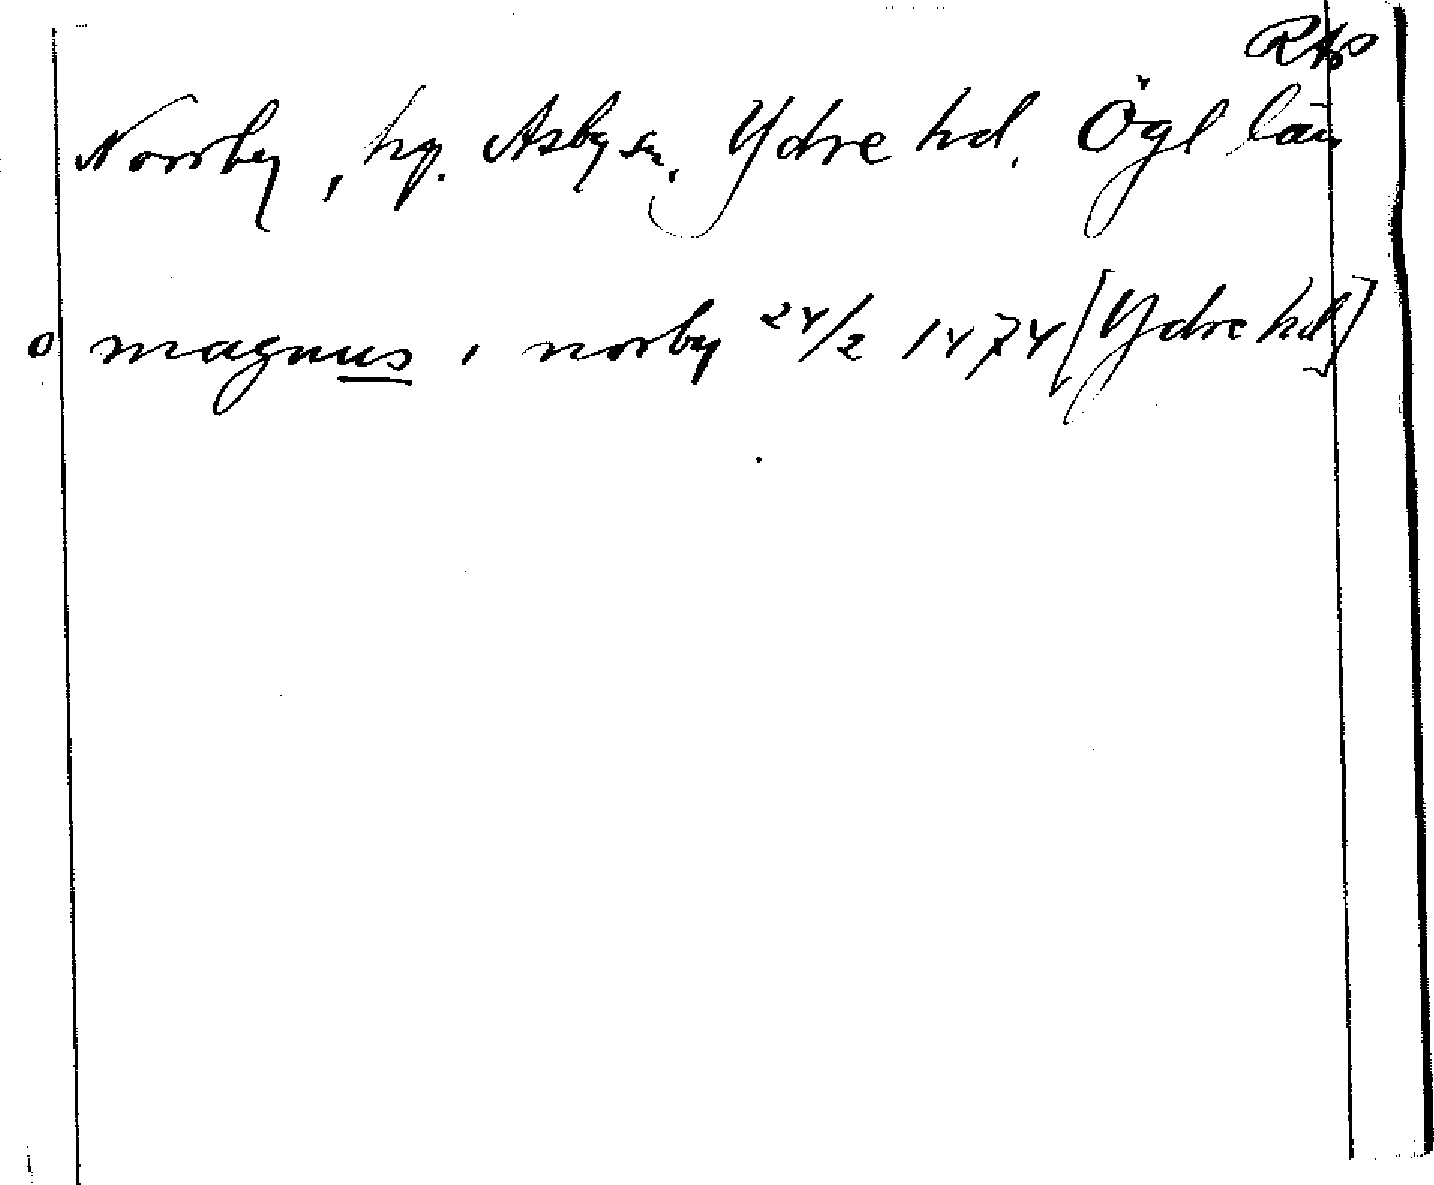 RAp
Norrby, hg. Asby sn, Ydre hd. Ögl län
o magnus i norby 24/2 1474 [Ydre hd]